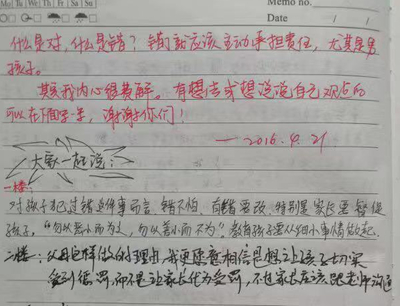 Mo Tu We Th Fr Sa Su
Memo no.
Date / /
什么是对，什么是错？错就应该主动承担责任，尤其是男
孩子。
其实我内心很费解。有想法或想说说自己观点的
可以在下面写一写，谢谢你们！
—2016.4.21
大家一起说：
一楼：
对孩子犯过错这件事而言，错不怕，有错要改，特别是家长要督促
孩子，“勿以恶小而为之，勿以善小而不为”教育孩子要从细小事情做起。
二楼：父母这样做的理由，我更愿意相信是想让孩子切实
受到惩罚，而不是让家长代为受罚，不过家长应该跟老师沟通